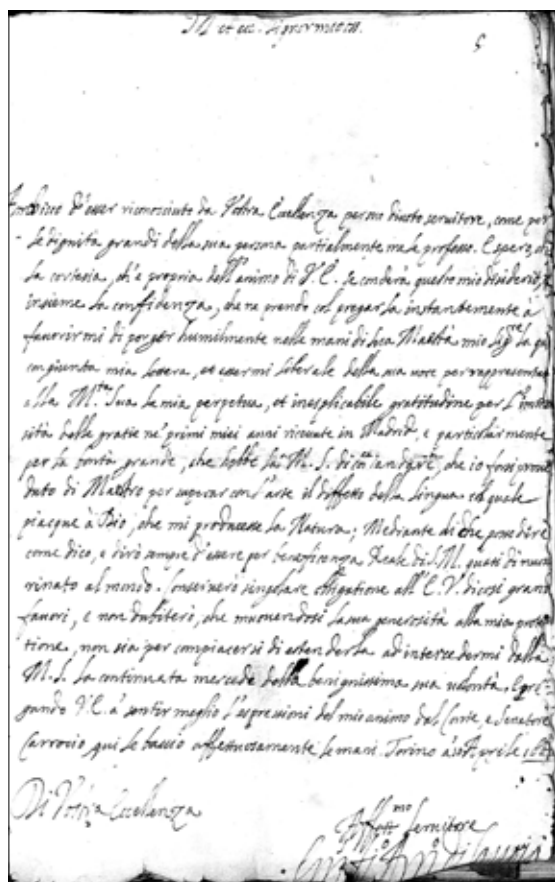 Ill et ecc. Sig
5
d'esser riconosciuto da Vostra Eccellenza per suo divoto servitore, come per
le dignità grandi della sua persona partialmente me le professo. E spero, che
la cortesia, ch'è propria dell'animo di V. E. seconderà questo mio desiderio, e
insieme la confidenza, che ne prendo col pregarla instantemente à
favorirmi di porger humilmente nelle mani di Sua Maestà mio Sig.re la qui
congiunta mia lettera, et essermi liberale della sua voce per rappresentar
alla M.tà Sua la mia perpetua, et inesplicabile gratitudine per
delle gratie ne' primi miei anni ricevute in Madrid, e particolarmente
per la bontà grande, che hebbe la M. S. di che io fossi
duto di Maestro per superar con l'arte il difetto della lingua col quale
piacque à Dio, che mi producesse la Natura; Mediante di che
come dico, e dirò sempre d'essere per beneficenza Reale di S. M. quasi di nuovo
rinato al mondo. Conserverò singolare obligatione all'E. V. di così grandi
favori, e non dubiterò, che muovendosi la sua generosità alla mia
tione, non sia per compiacersi di estenderla ad intercedermi dalla
M. S. la continuata mercede della benignissima sua volontà. E pre-
gando V. E. à sentir meglio l'espressioni del mio animo dal Conte, e Senatore
Carrocio qui le baccio affettuosamente le mani. Torino à Aprile
Di Vostra Eccellenza
Aff.mo Servitore
di Savoia